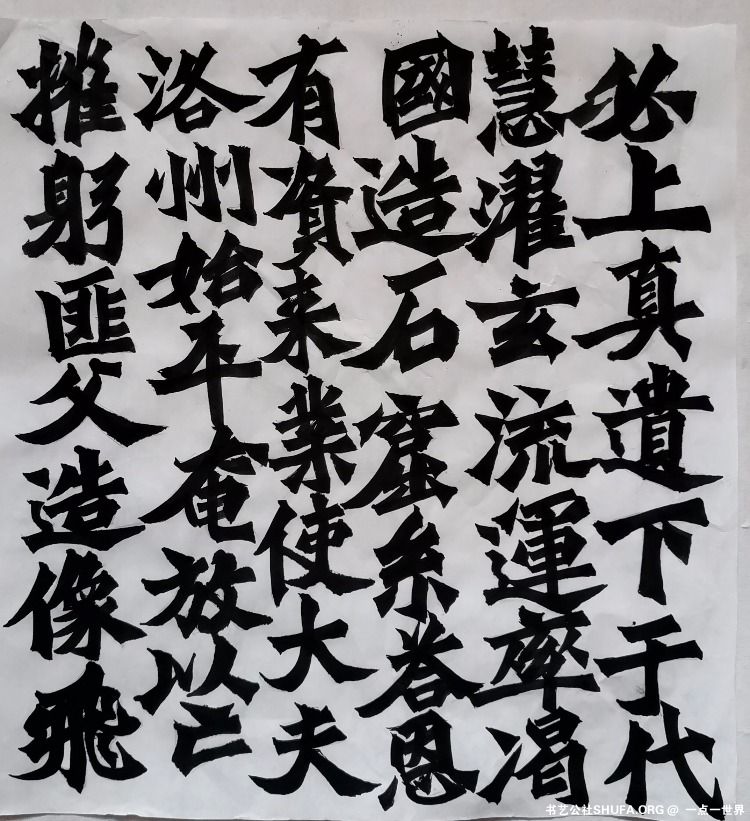 必上真遺下于代
慧濯玄流運率渴
國造石窟系答恩
有資来業使大夫
洛州始平奄放以亡
摧躬匪父造像飛
书艺公社SHUFA.ORG @ 一点一世界